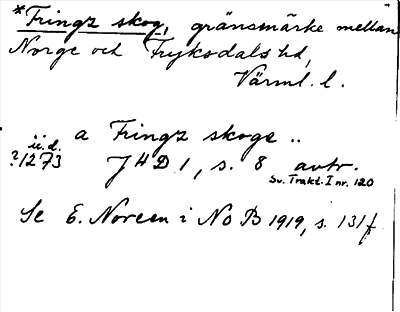 *Fringz skog, gränsmärke mellan
Norge och Fryksdals hd,
Värml. l.
a Fringz skoge ..
ii. d.
?1273 JHD 1, s. 8 avtr.
Sv. Trakt. I nr. 120
Se E. Noreen i NoB 1919, s. 131 f